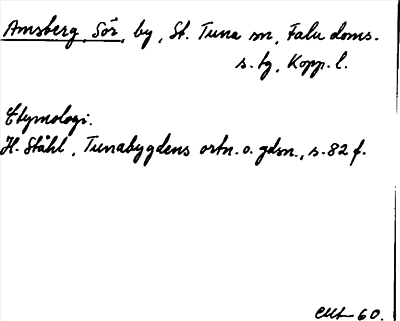 Amsberg, Sör, by, St. Tuna sn, Falu doms.
s. lg, Kopp. l.
Etymologi.
H. Ståhl, Tunabygdens ortn. o. gdsn., s. 82 f.
60.